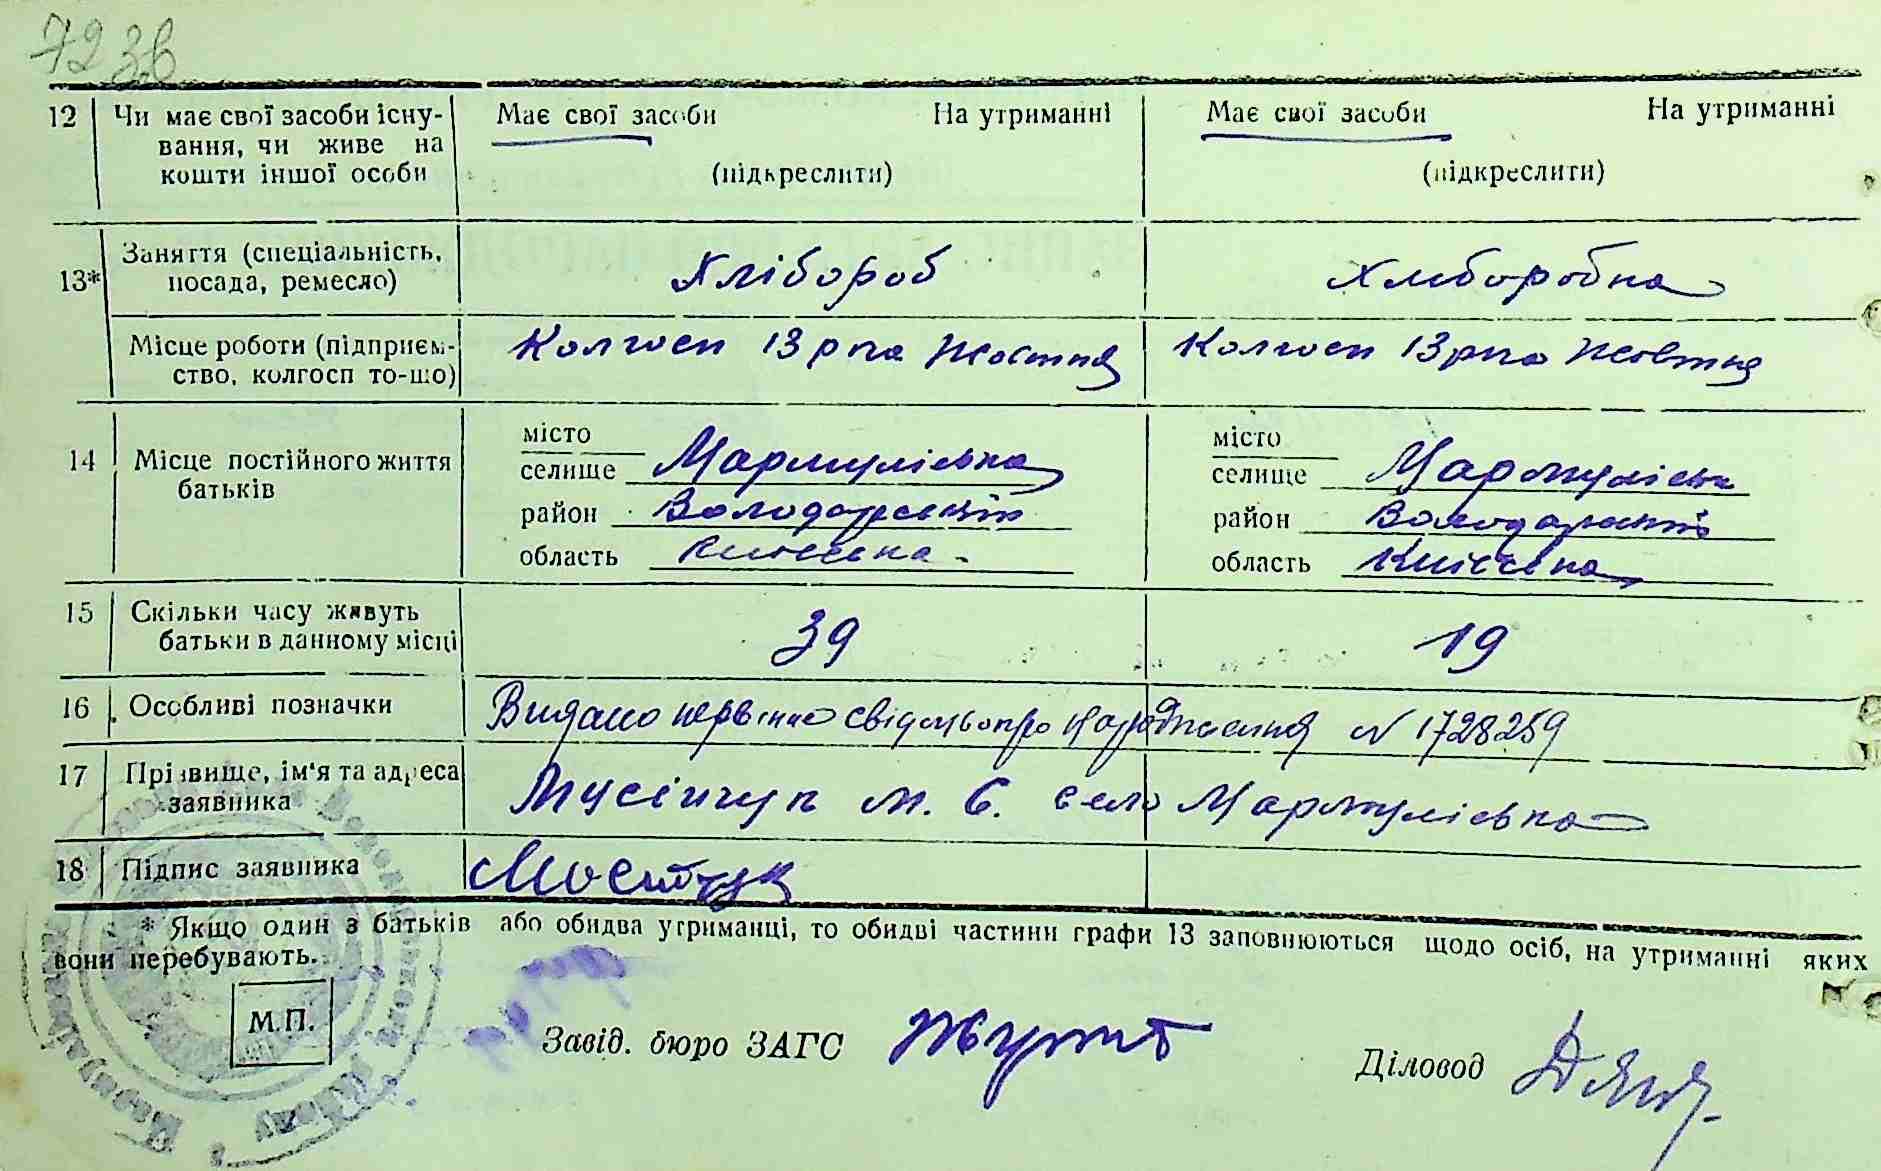 7236
12 Чи має свої засоби існу- Має свої засоби На утриманні Має свої засоби На утриманні
вання, чи живе на
кошти іншої особи (підкреслити) (підкреслити)
13* Заняття (спеціальність, посада, ремесло) Хлібороб Хлиборобка
Місце роботи (підприєм- Колгосп 13 рча Жовтня Колгосп 13 рча Жовтня
ство, колгосп то-що)
14 Місце постійного життя батьків
місто місто
селище Мармуліївка селище Мармуліївка
район Володарський район Володарський
область Київська область Київська
15 Скільки часу живуть 39 19
батьки в данному місці
16 Особливі позначки Видано первінне свідоцтво про народження N 1728259
17 Прізвище, ім'я та адреса заявника Мусійчук М. Є. село Мармуліївка
18 Підпис заявника
* Якщо один з батьків або обидва утриманці, то обидві частини графи 13 заповнюються щодо осіб, на утриманні яких
вони перебувають.
М.П.
Завід. бюро ЗАГС
Діловод